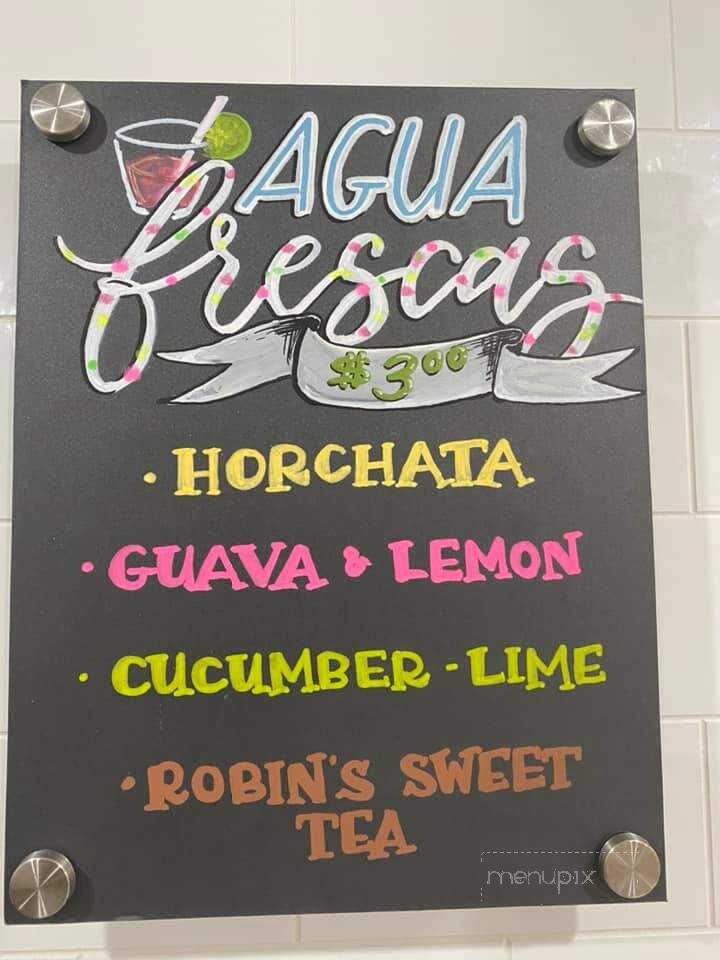 AGUA
frescas
$3.00
· HORCHATA
· GUAVA & LEMON
· CUCUMBER - LIME
· ROBIN'S SWEET
TEA
menupix